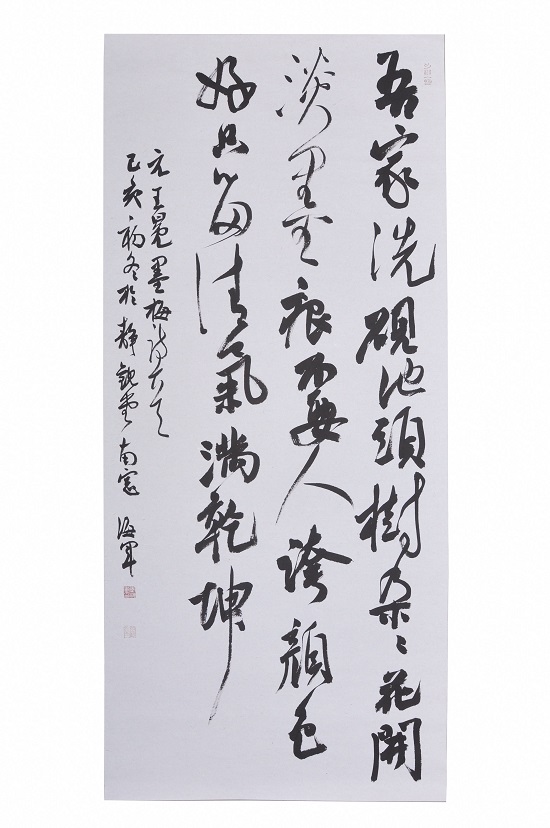 吾家洗硯池頭樹朵〻花開
淡墨痕不要人誇顏色
好只留清氣滿乾坤
元王冕墨梅詩
己亥初冬於靜觀堂南窗 海軍